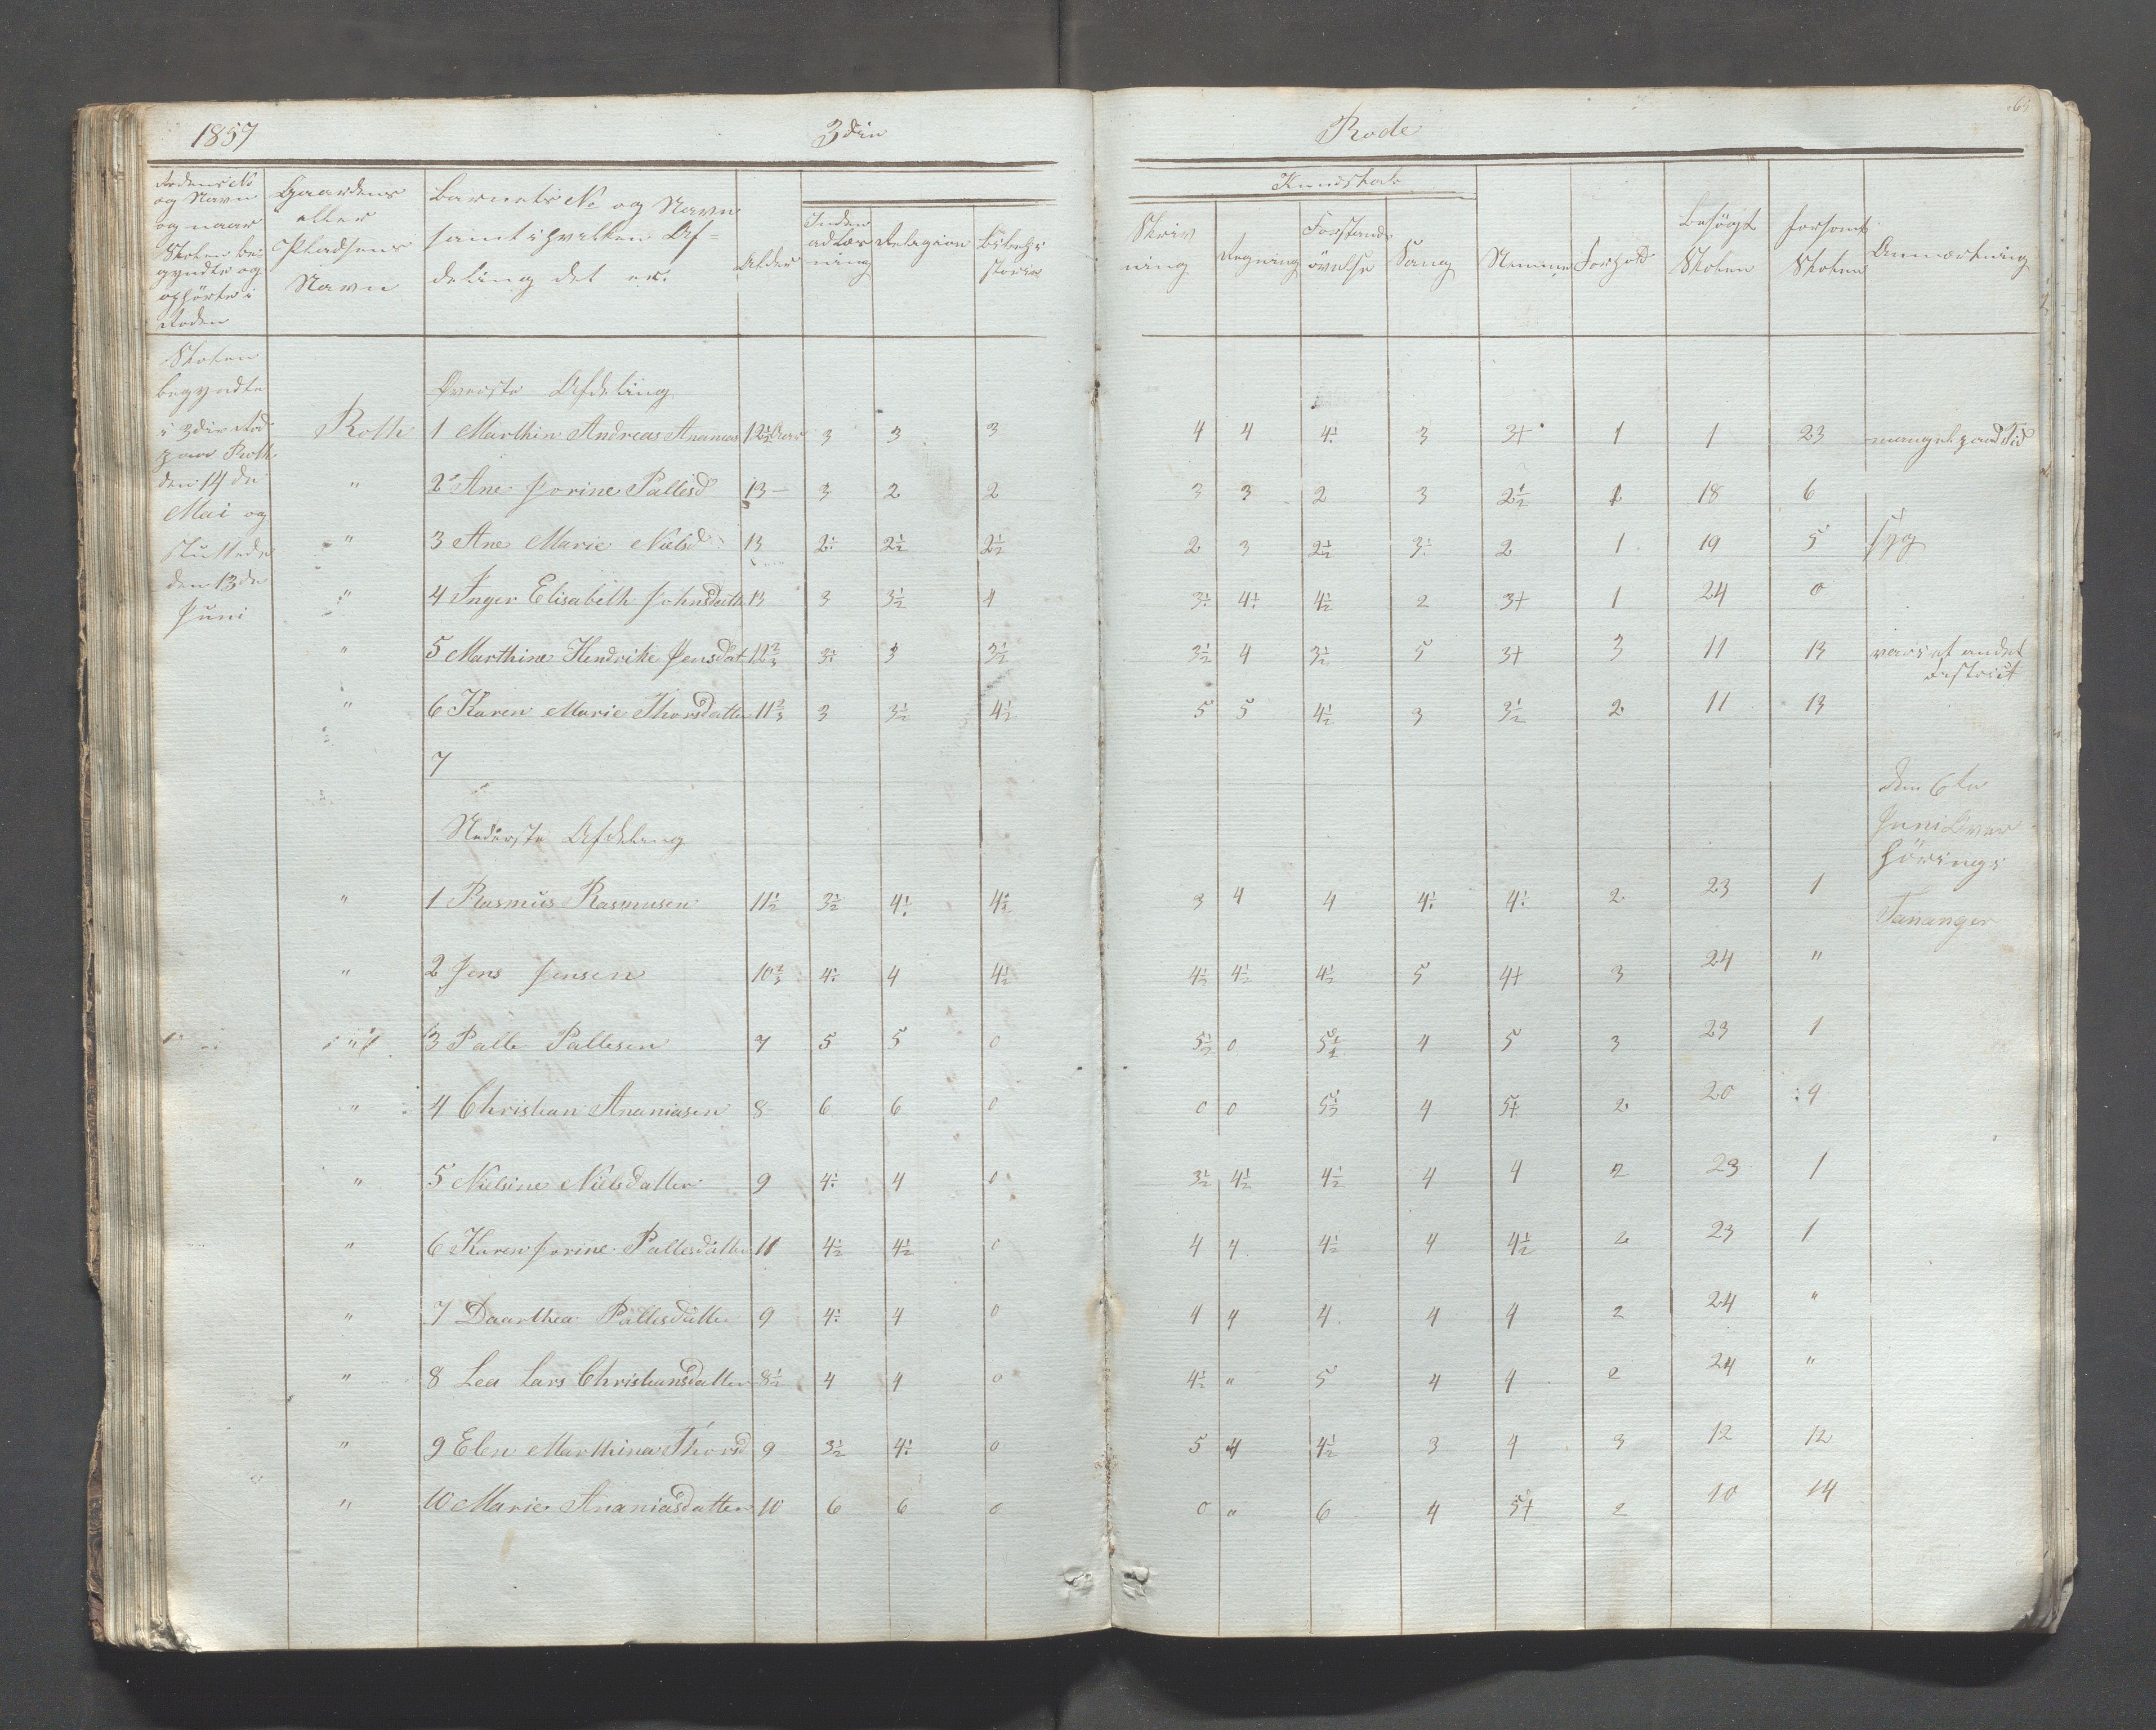 1857 3die Rode 65
Rodens No og Navn og naar Skolen begyndte og ophörte i Roden
Gaardens eller Pladsens Navn
Barnets No og Navn samt i hvilken Afdeling det er.
Alder
Inden ad Læsning
Religion
Bibelhistorie
Kundskab
Skrivning
Regning
Forstands övelse
Sang
Nemme
Forhold
Besögt Skolen
forsömt Skolen
Anmærkning
Skolen
begyndte
i 3die Rod
paa Roth
den 14de
Mai og
sluttede
den 13de
Juni
Överste Afdeling
Roth 1 Marthin Andreas Ananias 12½ Aar 3 3 3 4 4 4÷ 3 3+ 1 1 23 mangel paa Tid
" 2 Ane Jorine Pallesd 13 3 2 2 3 3 2 3 2½ 1 18 6
" 3 Ane Marie Nielsd 13 2÷ 2½ 2½ 2 3 2½ 3÷ 2 1 19 5 syg
" 4 Inger Elisabeth Johnsdatt 13 3 3½ 4 3÷ 4÷ 4½ 2 3+ 1 24 0
" 5 Marthine Hendrike Jensdat 12⅔ 3÷ 3 3½ 3½ 4 3½ 5 3+ 3 11 13 været i et andet
District
" 6 Karen Marie Thorsdatter 11⅔ 3 3½ 4½ 5 5 4½ 3 3½ 2 11 13
7
Nederste Afdeling
den 6te
Juni Över
hörings
Tananger
" 1 Rasmus Rasmusen 11½ 3½ 4÷ 4½ 3 4 4 4÷ 4÷ 2 23 1
" 2 Jens Jensen 10⅔ 4÷ 4 4½ 4½ 4½ 4½ 5 4+ 3 24 "
" 3 Palle Pallesen 7 5 5 0 5½ 0 5½ 4 5 3 23 1
" 4 Christian Ananiasen 8 6 6 0 0 0 5½ 4 5+ 2 20 4
" 5 Nielsine Nielsdatter 9 4÷ 4 0 3½ 4½ 4½ 4 4 2 23 1
" 6 Karen Jorine Pallesdatter 11 4½ 4½ 0 4 4 4½ 4 4½ 2 23 1
" 7 Daarthea Pallesdatter 9 4÷ 4 0 4 4 4 4 4 2 24 "
" 8 Lea Lars Christiansdatter 8½ 4 4 0 4½ " 5 4 4 2 24 "
" 9 Elen Marthina Thorsd 9 3½ 4÷ 0 5 4 4½ 3 4 3 12 12
" 10 Marie Ananiasdatter 10 6 6 0 0 " 6 4 5+ 2 10 14